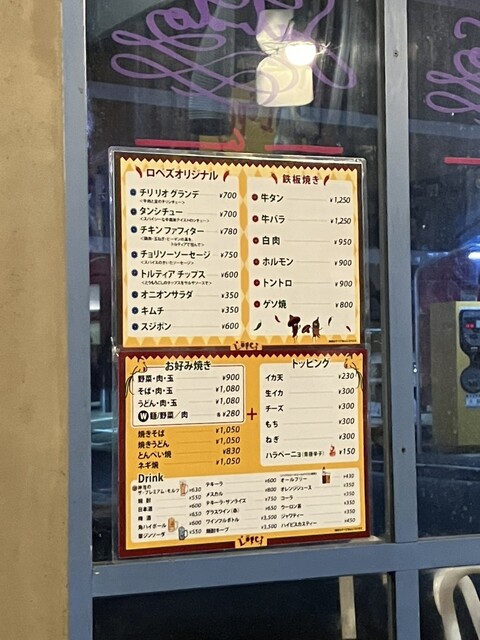 ロペズオリジナル
チリ リオ グランデ ¥700
タンシチュー ¥700
チキン ファフィター ¥780
チョリソーソーセージ ¥750
<スパイスのきいたソーセージ>
トルティア チップス ¥600
オニオンサラダ ¥350
キムチ ¥350
スジポン ¥600
鉄板焼き
牛タン ¥1,250
牛バラ ¥1,250
白肉 ¥950
ホルモン ¥900
トントロ ¥900
ゲソ焼 ¥800
お好み焼き
野菜・肉・玉 ¥900
そば・肉・玉 ¥1,080
うどん・肉・玉 ¥1,080
W 麺/野菜/肉 各¥280
焼きそば ¥1,050
焼きうどん ¥1,050
とんぺい焼 ¥830
ネギ焼 ¥1,050
+
トッピング
イカ天 ¥230
生イカ ¥300
チーズ ¥300
もち ¥300
ねぎ ¥300
ハラペーニョ(青唐辛子) ¥150
Drink
ザ・プレミアム・モルツ ¥630
焼酎 ¥550
日本酒 ¥600
梅酒 ¥550
角ハイボール
翠ジンソーダ ¥550
テキーラ ¥600
メスカル ¥800
テキーラ・サンライズ ¥750
グラスワイン(赤) ¥650
ワインフルボトル
焼酎キープ
オールフリー ¥430
オレンジジュース ¥350
コーラ ¥350
ウーロン茶 ¥350
ジャワティー ¥350
ハイビスカスティー ¥450